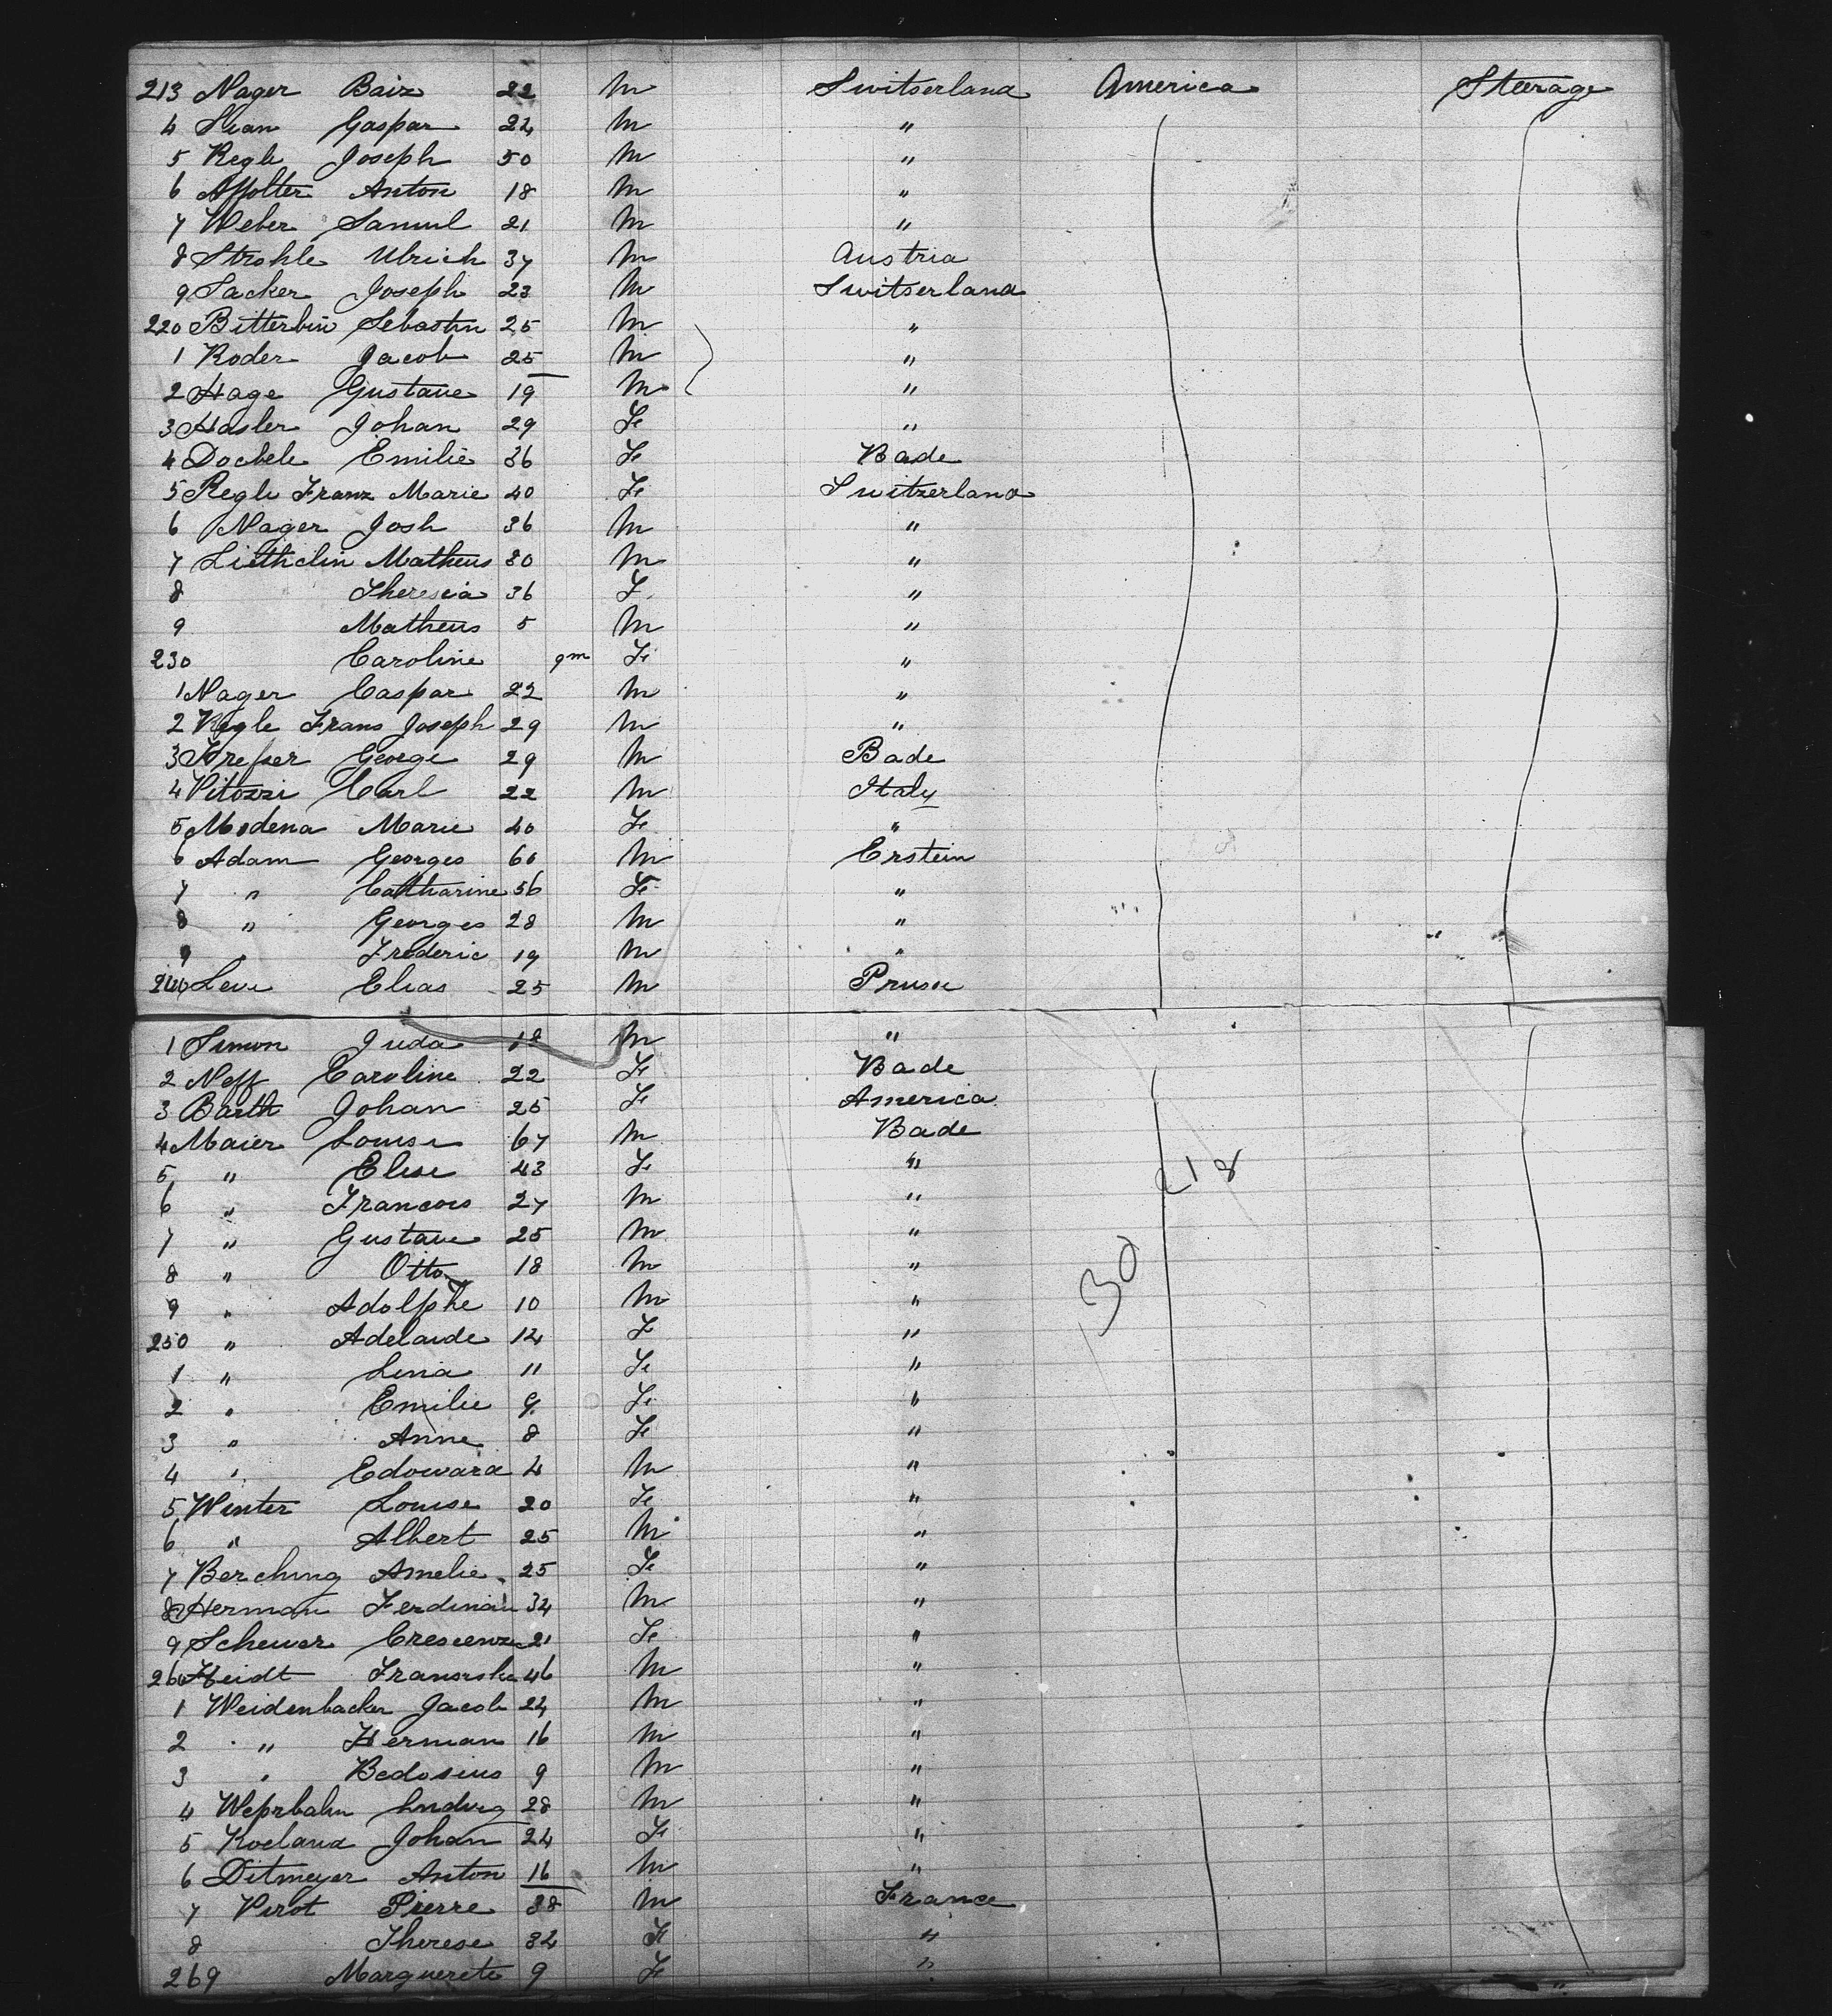 213 Nager Baiz 22 M Switserland America Steerage
4 Gaspar 24 M "
5 Regli Joseph 50 M "
6 Affolter Anton 18 M "
7 Weber Samuel 21 M "
8 Strohle Ulrich 37 M Austria
9 Sacker Joseph 23 M Switserland
220 Bitterbin Sebastin 25 M "
1 Roder Jacob 25 M "
2 Hage Gustave 19 M "
3 Hasler Johan 29 Fe "
4 Dochele Emilie 36 Fe Bade
5 Regli Franz Marie 40 Fe Switzerland
6 Nager Josh 36 M "
7 Liethclin Matheus 30 M "
8 Theresia 36 F "
9 Matheus 5 M "
230 Caroline 9m Fe "
1 Nager Caspar 22 M "
2 Regle Frans Joseph 29 M "
3 George 29 M Bade
4 Vitozzi Carl 22 M Italy
5 Modena Marie 40 Fe "
6 Adam Georges 60 M Erstein
7 " Catharine 56 Fe "
8 " Georges 28 M "
9 " Frederic 19 M "
240 Levi Elias 25 M Prusse
1 Simon Juda 18 M "
2 Neff Caroline 22 Fe Bade
3 Barth Johan 25 Fe America
4 Maier Louise 67 M Bade
5 " Elise 43 Fe " 218
6 " Francois 27 M "
7 " Gustave 25 M "
8 " Otto 18 M " 130
9 " Adolphe 10 M "
250 " Adelaide 14 F "
1 " Lina 11 Fe "
2 " Emilie 9 Fe "
3 " Anne 8 Fe "
4 " Edowara 4 M "
5 Winter Louise 20 Fe "
6 " Albert 25 M "
7 Berching Amelie 25 Fe "
8 Herman Ferdinan 34 M "
9 Scheuer Crescenze 21 Fe "
260 Heidt Fransiska 46 M "
1 Weidenbacker Jacob 24 M "
2 " Herman 16 M "
3 " Bedosius 9 M "
4 Weprbahn Ludvig 28 M "
5 Roeland Johan 24 Fe "
6 Ditmeyer Anton 16 M "
7 Virot Pierre 38 M France
8 Therese 34 Fe "
269 Marguerete 9 Fe "